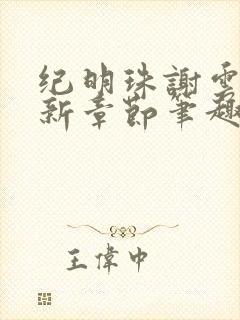 纪明珠謝雲
新章節筆趣
王偉中